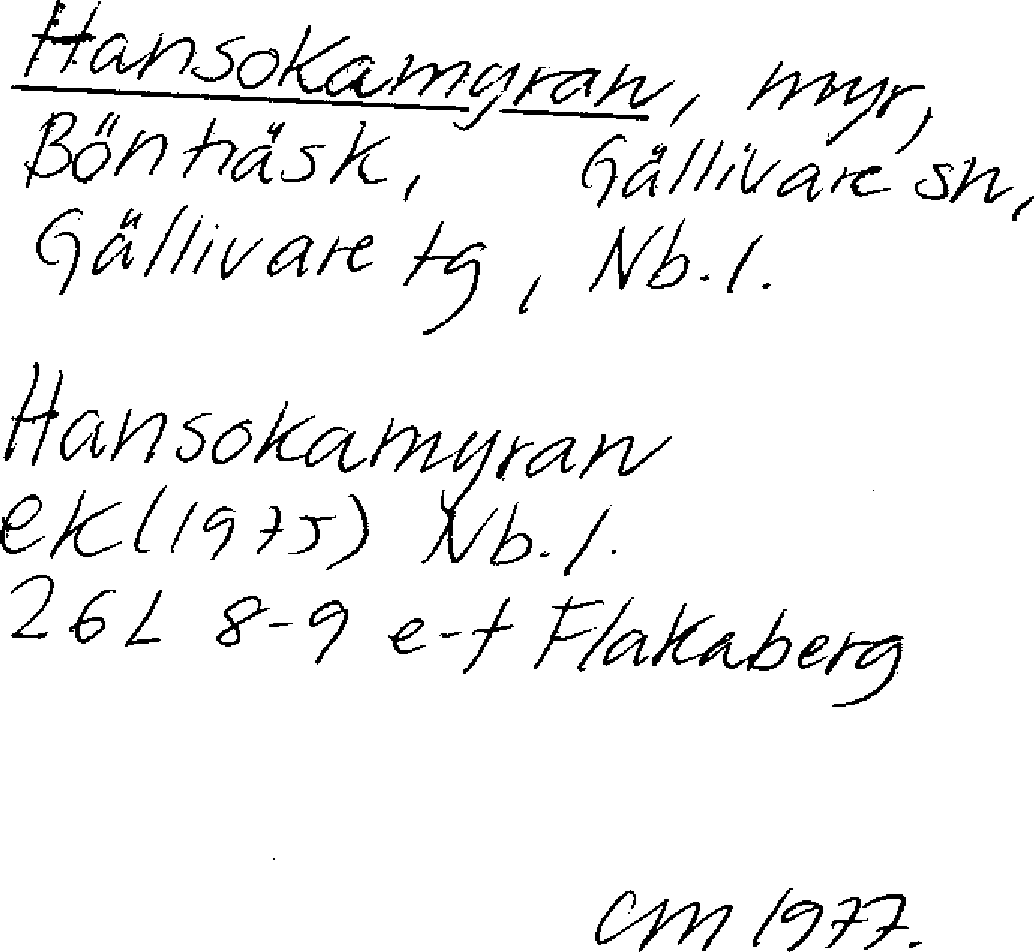 Hansokamyran, myr,
Bönträsk, Gällivare sn,
Gällivare tg, Nb.l.
Hansokamyran
ek(1975) Nb.l.
26L 8-9 e-f Flakaberg
CM 1977.